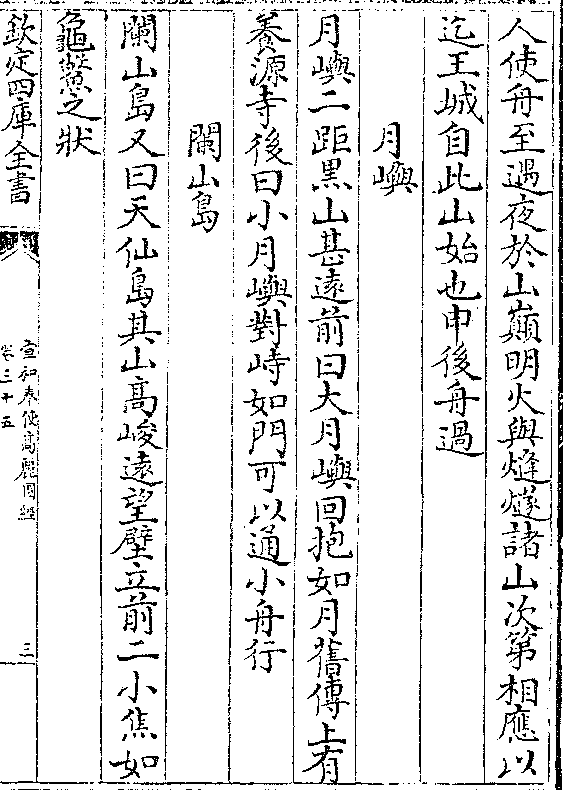 人使舟至遇夜於山巔明火與熢燧諸山次第相應以
迄王城自此山始也申後舟過
月嶼
月嶼二距黒山甚遠前曰大月嶼回抱如月舊傳上有
養源寺後曰小月嶼對峙如門可以通小舟行
闌山島
闌山島又曰天仙島其山髙峻遠望壁立前二小焦如
龜鼈之狀
欽定四庫全書
宣和奉使髙麗圖經
卷三十五
三